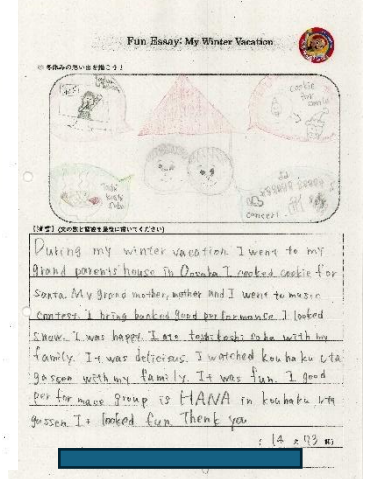 Fun Essay: My Winter Vacation
冬休みの思い出を描こう！
cookie
for
santa
toshi
koshi
soba
concert
During my winter vacation I went to my
grand parents house in Oosaka I cooked cookie for
Santa. My grand mother, mother and I went to music
contest. I bring banked good performance. I looked
show. I was happy. I ate toshikoshi soba with my
family. It was delicious. I watched kouhaku uta
gassen with my family. It was fun. I good
performance group is HANA in kouhaku uta
gassen It looked fun Thank you
( 14 文 93 語)